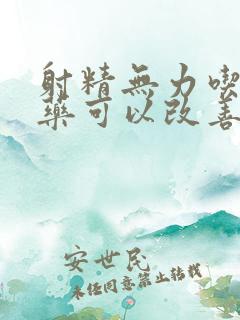 射精無力喫
藥可以改善
安世民
未經同意禁止轉載